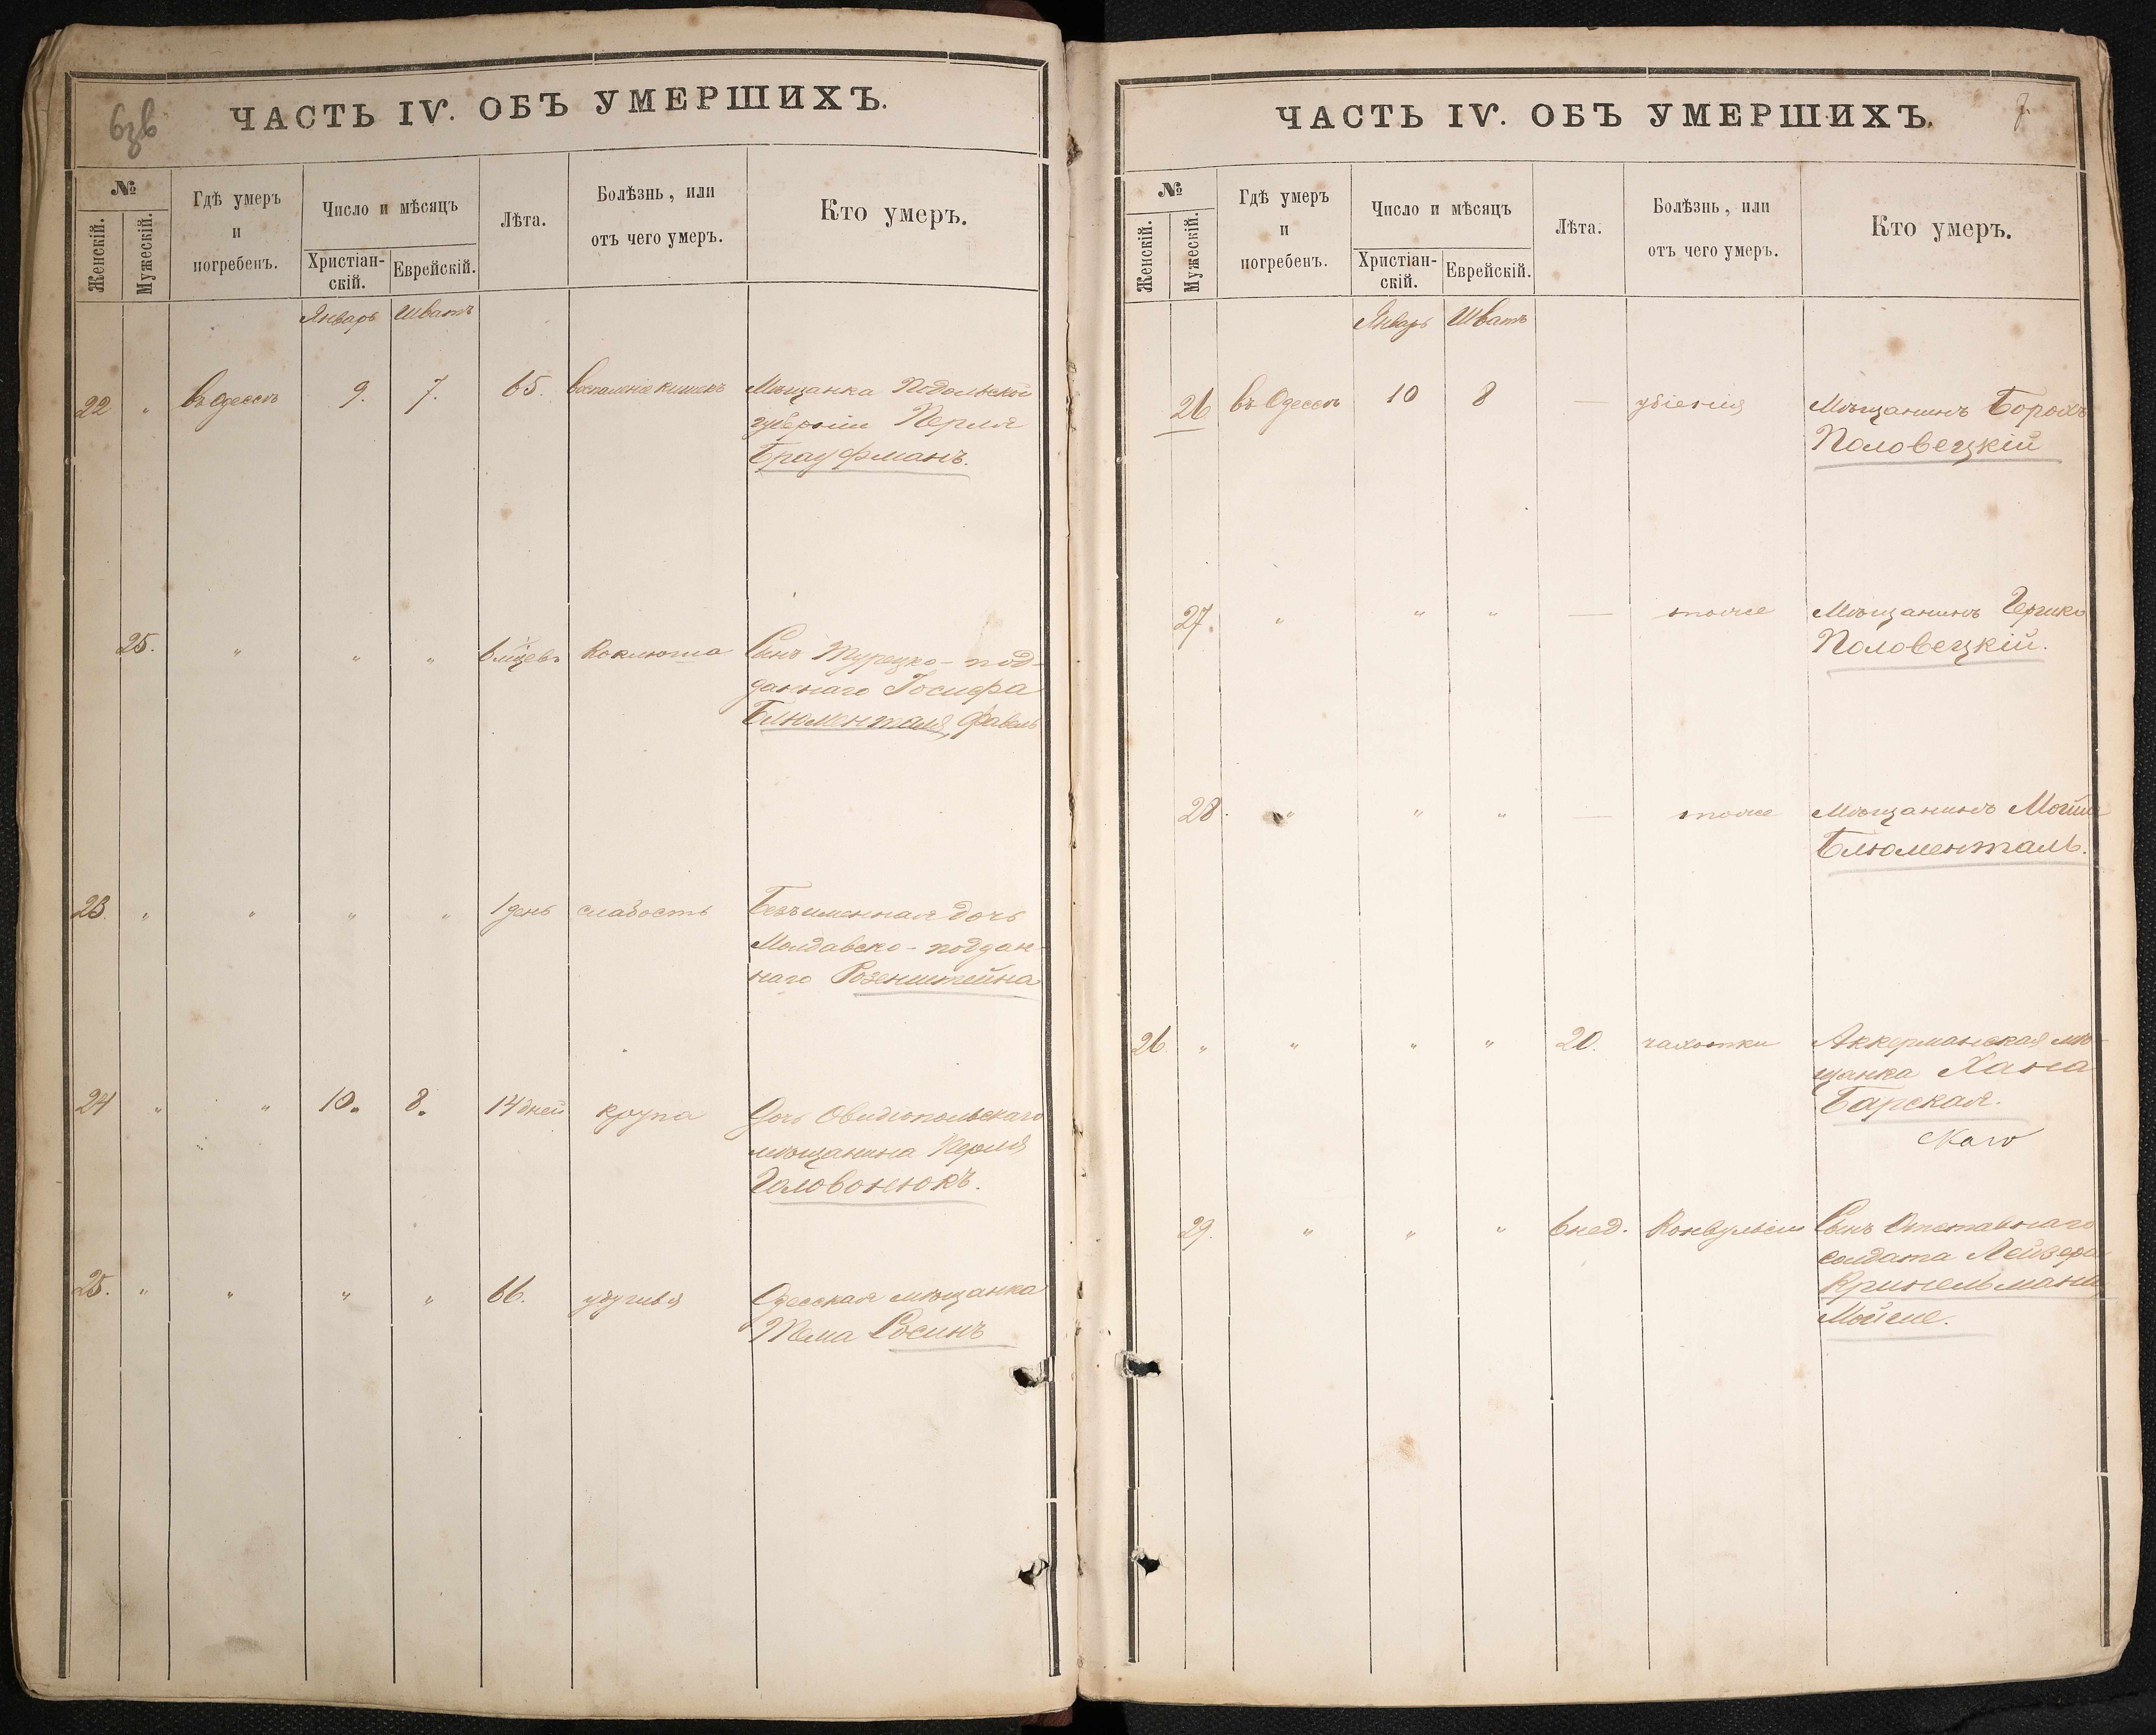 ЧАСТЬ IV. ОБЪ УМЕРШИХЪ.
№
Женскій.
Мужескій.
Гдѣ умеръ
и
погребенъ.
Число и мѣсяцъ
Христіан-
скій.
Еврейскій.
Лѣта.
Болѣзнь, или
отъ чего умеръ.
Кто умеръ.
Январь Шватъ
22 " въ Одессѣ 9. 7. 65. воспаленіе кишекъ Мѣщанка Подольской
губерніи Перля
Брауфманъ.
25. " " " 6 мѣцевъ Коклюша Сынъ Турецко-под-
даннаго Іосифа
Блюменталя, Фавель
23. " " " " 1 день слабость Безъименная дочь
Молдавско-поддан-
наго Розенштейна
24 " " 10. 8. 14 дней крупа Дочь Овидіопольскаго
мѣщанина Перля
Головонюкъ.
25. " " " " 66. удушья Одесская мѣщанка
Тема Росинъ
ЧАСТЬ IV. ОБЪ УМЕРШИХЪ.
7.
№
Женскій.
Мужескій.
Гдѣ умеръ
и
погребенъ.
Число и мѣсяцъ
Христіан-
скій.
Еврейскій.
Лѣта.
Болѣзнь, или
отъ чего умеръ.
Кто умеръ.
Январь Шватъ
26 въ Одессѣ 10 8 — убіенія Мѣщанинъ Борохъ
Половецкій
27. " " " — тоже Мѣщанинъ Гершко
Половецкій.
28. " " " — тоже Мѣщанинъ Мойше
Блюменталь.
26. " " " " 20. чахотки Аккерманская мѣ-
щанка Хана
Барская.
29. " " " 6 нед. Конвульсіи Сынъ Отставнаго
солдата Лейзера
Кринельмана,
Мойше.